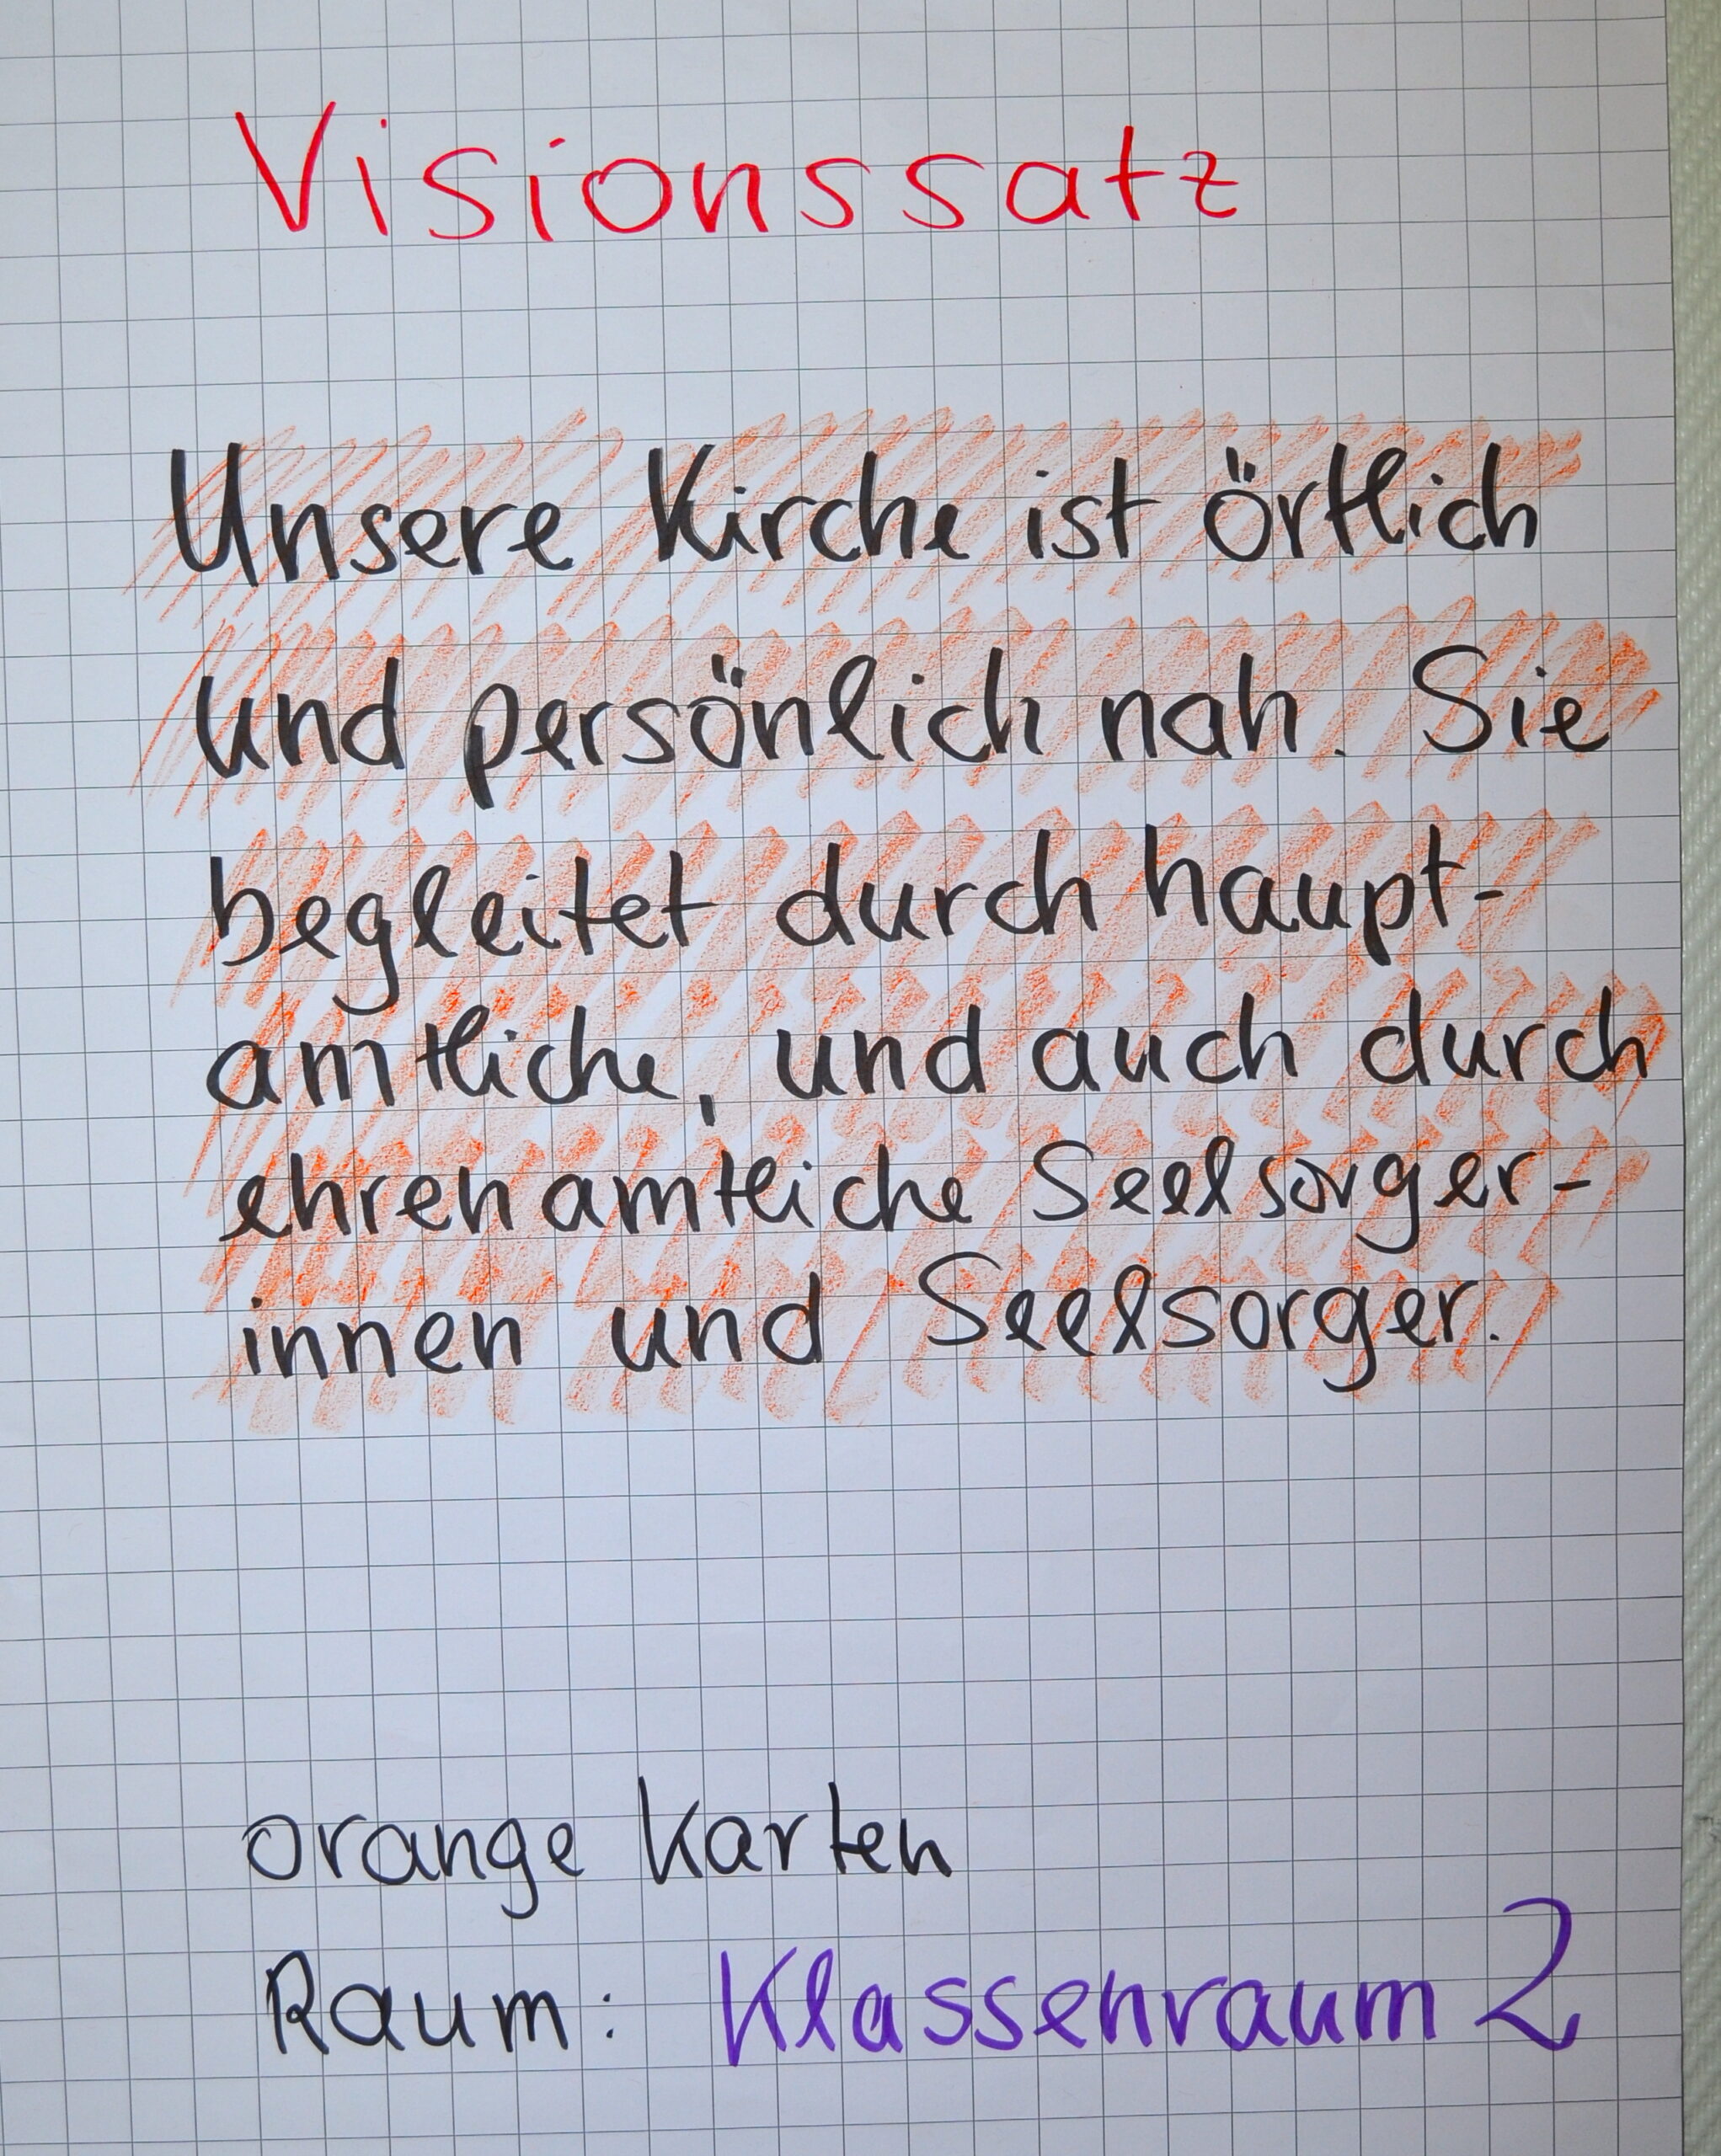 Visionssatz
Unsere Kirche ist örtlich
und persönlich nah. Sie
begleitet durch haupt-
amtliche, und auch durch
ehrenamtliche Seelsorger-
innen und Seelsorger.
orange Karten
Raum: Klassenraum 2